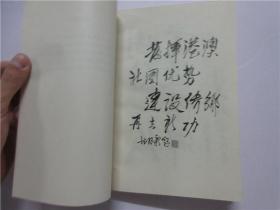 发挥港澳
社团优势
建设侨乡
再立新功